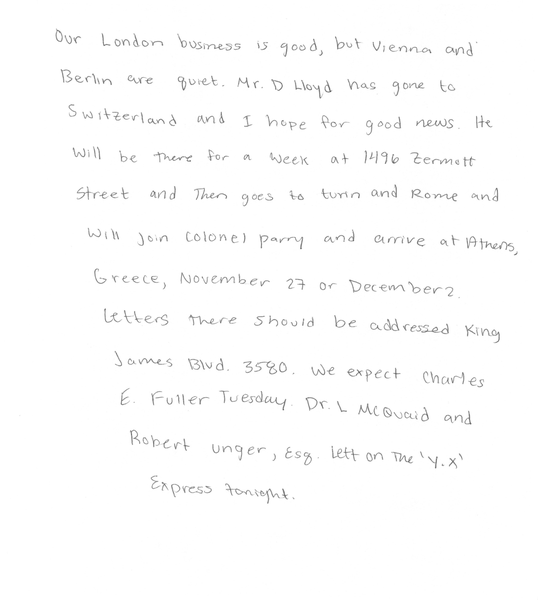 Our London business is good, but Vienna and
Berlin are quiet. Mr. D Lloyd has gone to
Switzerland and I hope for good news. He
will be there for a week at 1496 Zermott
Street and Then goes to turin and Rome and
will join colonel parry and arrive at Athens,
Greece, November 27 or December 2.
Letters there should be addressed King
James Blvd. 3580. We expect Charles
E. Fuller Tuesday. Dr. L McQuaid and
Robert unger, Esq. left on The 'Y.X'
Express tonight.